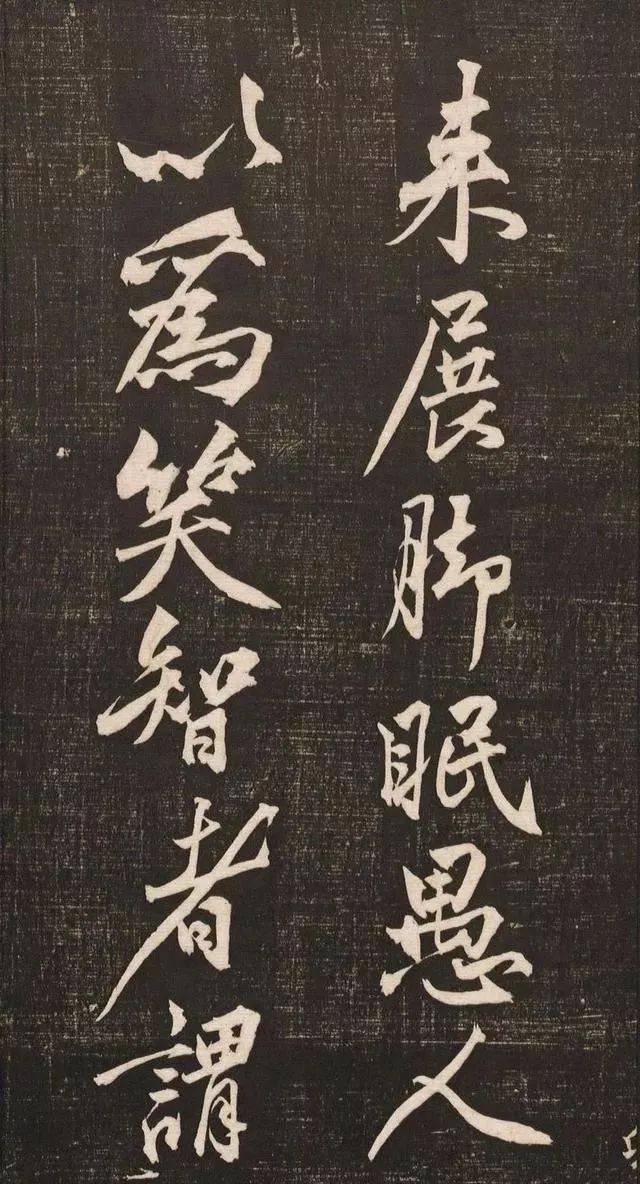 来展脚眠愚人
以為笑智者謂